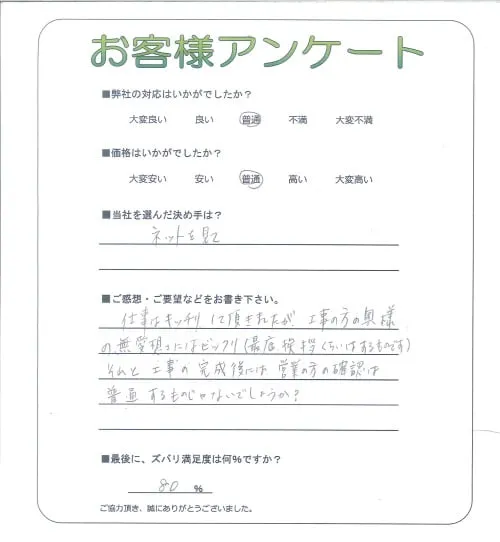 お客様アンケート
■弊社の対応はいかがでしたか？
大変良い 良い 普通 不満 大変不満
■価格はいかがでしたか？
大変安い 安い 普通 高い 大変高い
■当社を選んだ決め手は？
ネットを見て
■ご感想・ご要望などをお書き下さい。
仕事はキッチリして頂きましたが、工事の方の奥様
の無愛想さにはビックリ(最低挨拶くらいはするものです)
それと工事の完成後には営業の方の確認は
普通するものじゃないでしょうか?
■最後に、ズバリ満足度は何％ですか？
80 ％
ご協力頂き、誠にありがとうございました。